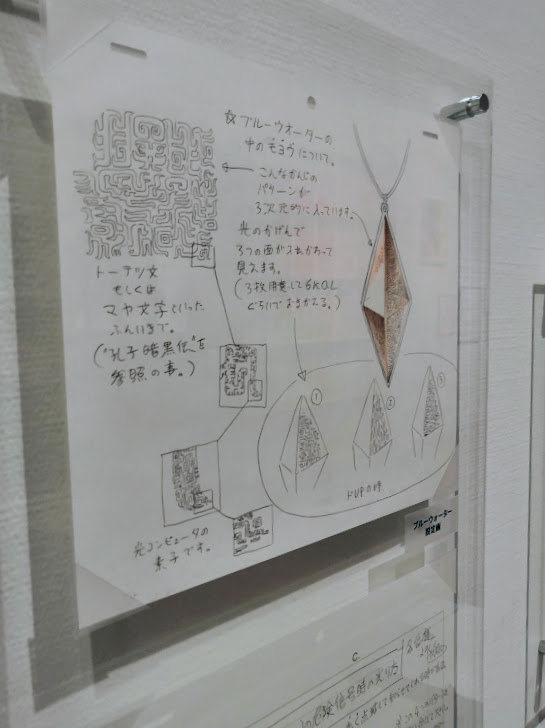 ☆ブルーウォーターの
中のモヨウについて。
こんなかんじの
パターンが
3次元的に入っています。
光のかげんで
3つの面が入れかわって
見えます。
(3枚用意して6K O.L
ぐらいでおきかえる。)
トーテツ文
もしくは
マヤ文字といった
ふんいきで。
("孔子暗黒伝"を
参照の事。)
①
②
③
ドUPの時
光コンピュータの
素子です。
ブルーウォーター
設定画
C
信号時の光り方